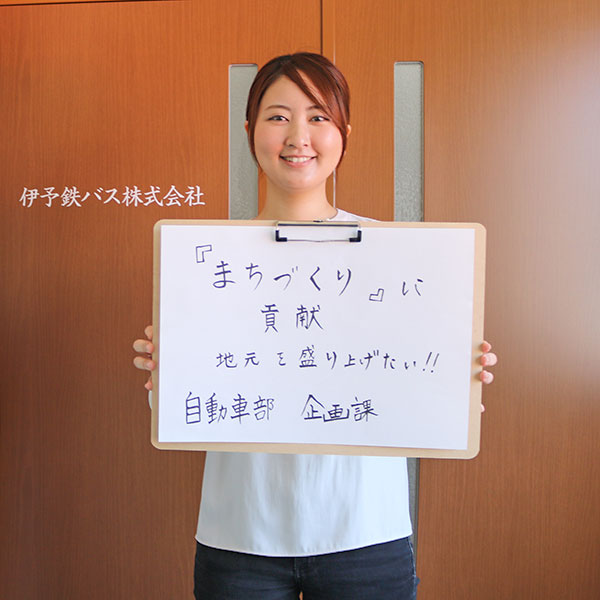 伊予鉄バス株式会社
『まちづくり』に
貢献
地元を盛り上げたい!!
自動車部 企画課